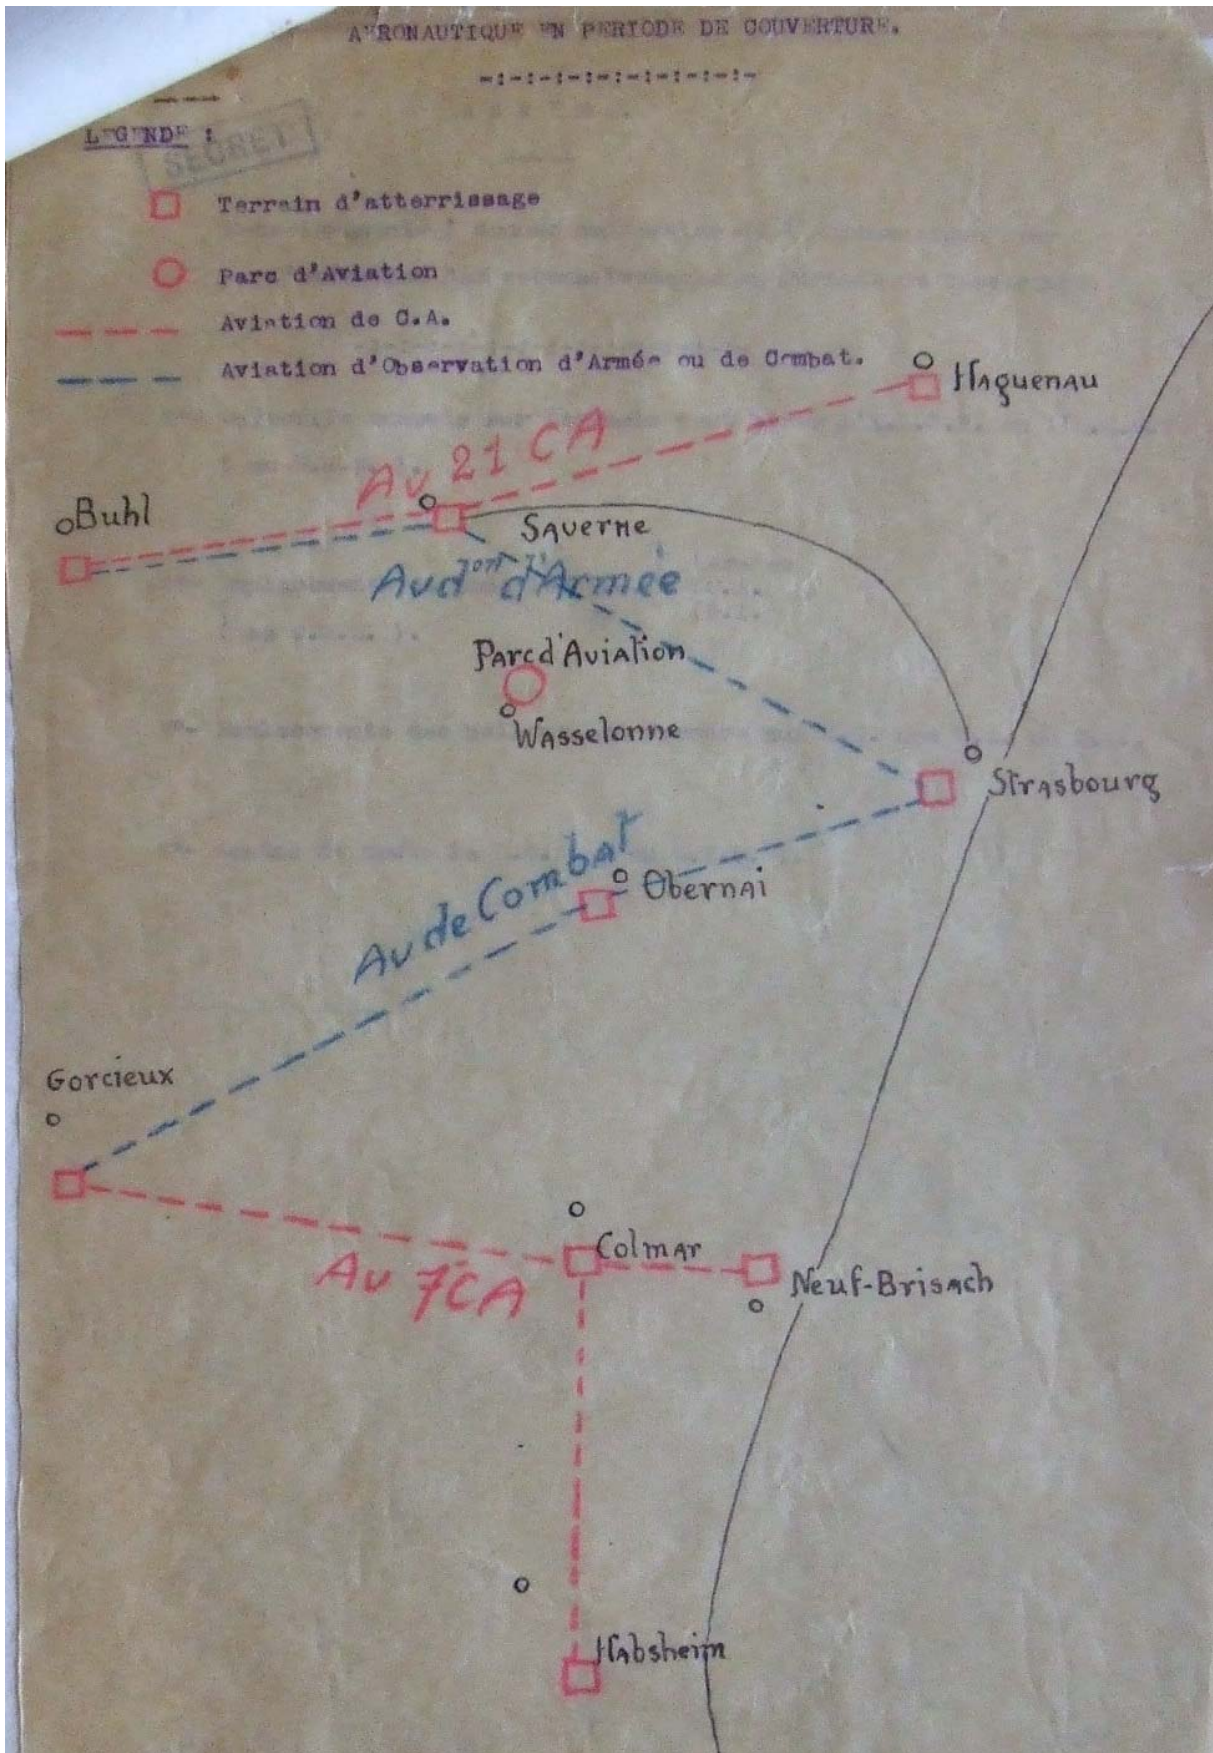 AERONAUTIQUE EN PERIODE DE COUVERTURE.
-:-:-:-:-:-:-:-:-:-
LEGENDE :
SECRET
Terrain d'atterrissage
Parc d'Aviation
Aviation de C.A.
Aviation d'Observation d'Armée ou de Combat.
Haguenau
Av 21 CA
Buhl
Saverne
d'Armée
Parc d'Aviation
Wasselonne
Strasbourg
Av de Combat
Obernai
Gorcieux
Colmar
Av 7 CA
Neuf-Brisach
Habsheim